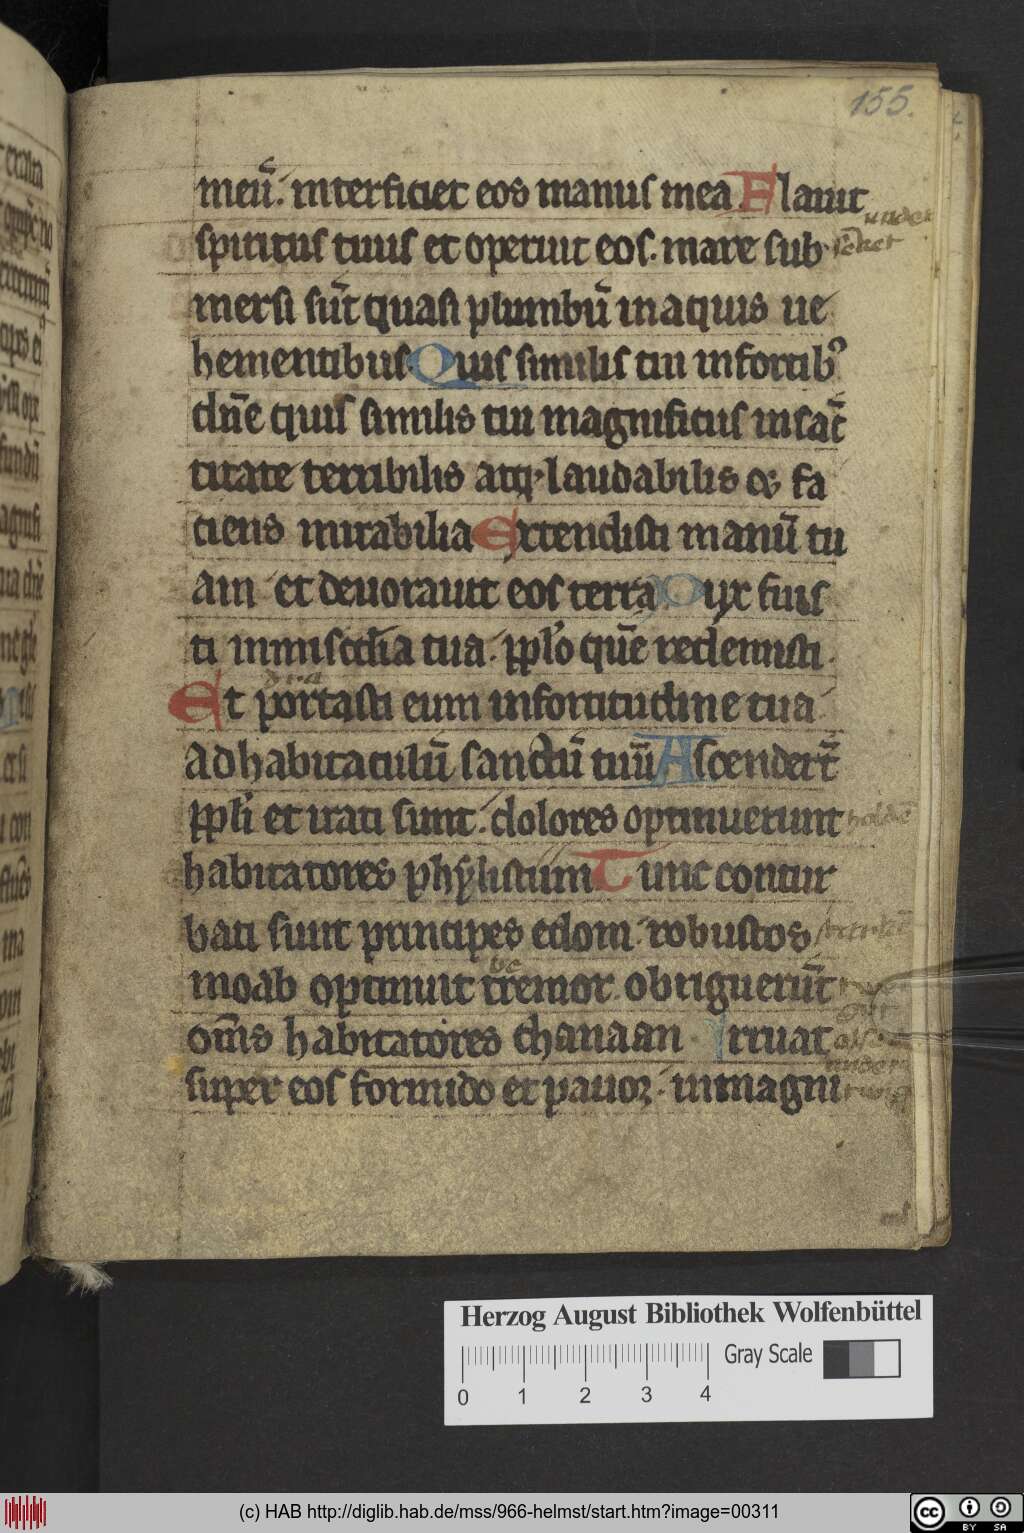 155.
meū. interficiet eos manus mea Flauit
spiritus tuus et operuit eos. mare sub
mersi sūt quasi plumbū in aquis ue
hementibus. Quis similis tui in fortibꝰ
dn̄e quis similis tui magnificus in sāc
titate terribilis atqꝫ laudabilis et fa
ciens mirabilia Extendisti manū tu
am et deuorauit eos terra Dux fuis
ti in miscd̄ia tua. ppl̄o quē redemisti.
Et portasti eum in fortitudine tua
ad habitaculū sanctū tuū Ascenderūt
ppl̄i et irati sunt. dolores optinuerunt
habitatores phylistiim Tunc contur
bati sunt principes edom. robustos
moab optinuit tremor. obriguerūt
om̄s habitatores chanaan Irruat
super eos formido et pauor. in magni
Herzog August Bibliothek Wolfenbüttel
Gray Scale
0 1 2 3 4
(c) HAB http://diglib.hab.de/mss/966-helmst/start.htm?image=00311
CC BY SA